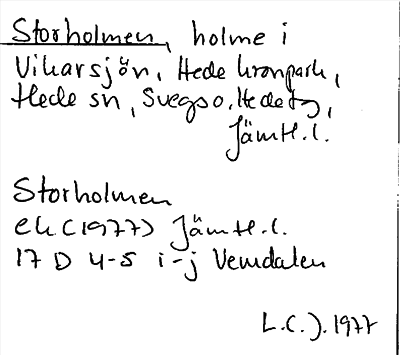 Storholmen, holme i
Vikarsjön, Hede kronpark,
Hede sn, Svegs o. Hede tg,
Jämtl.l.
Storholmen
ek (1977) Jämtl.l.
17 D 4-5 i-j Vemdalen
L.C.J. 1977